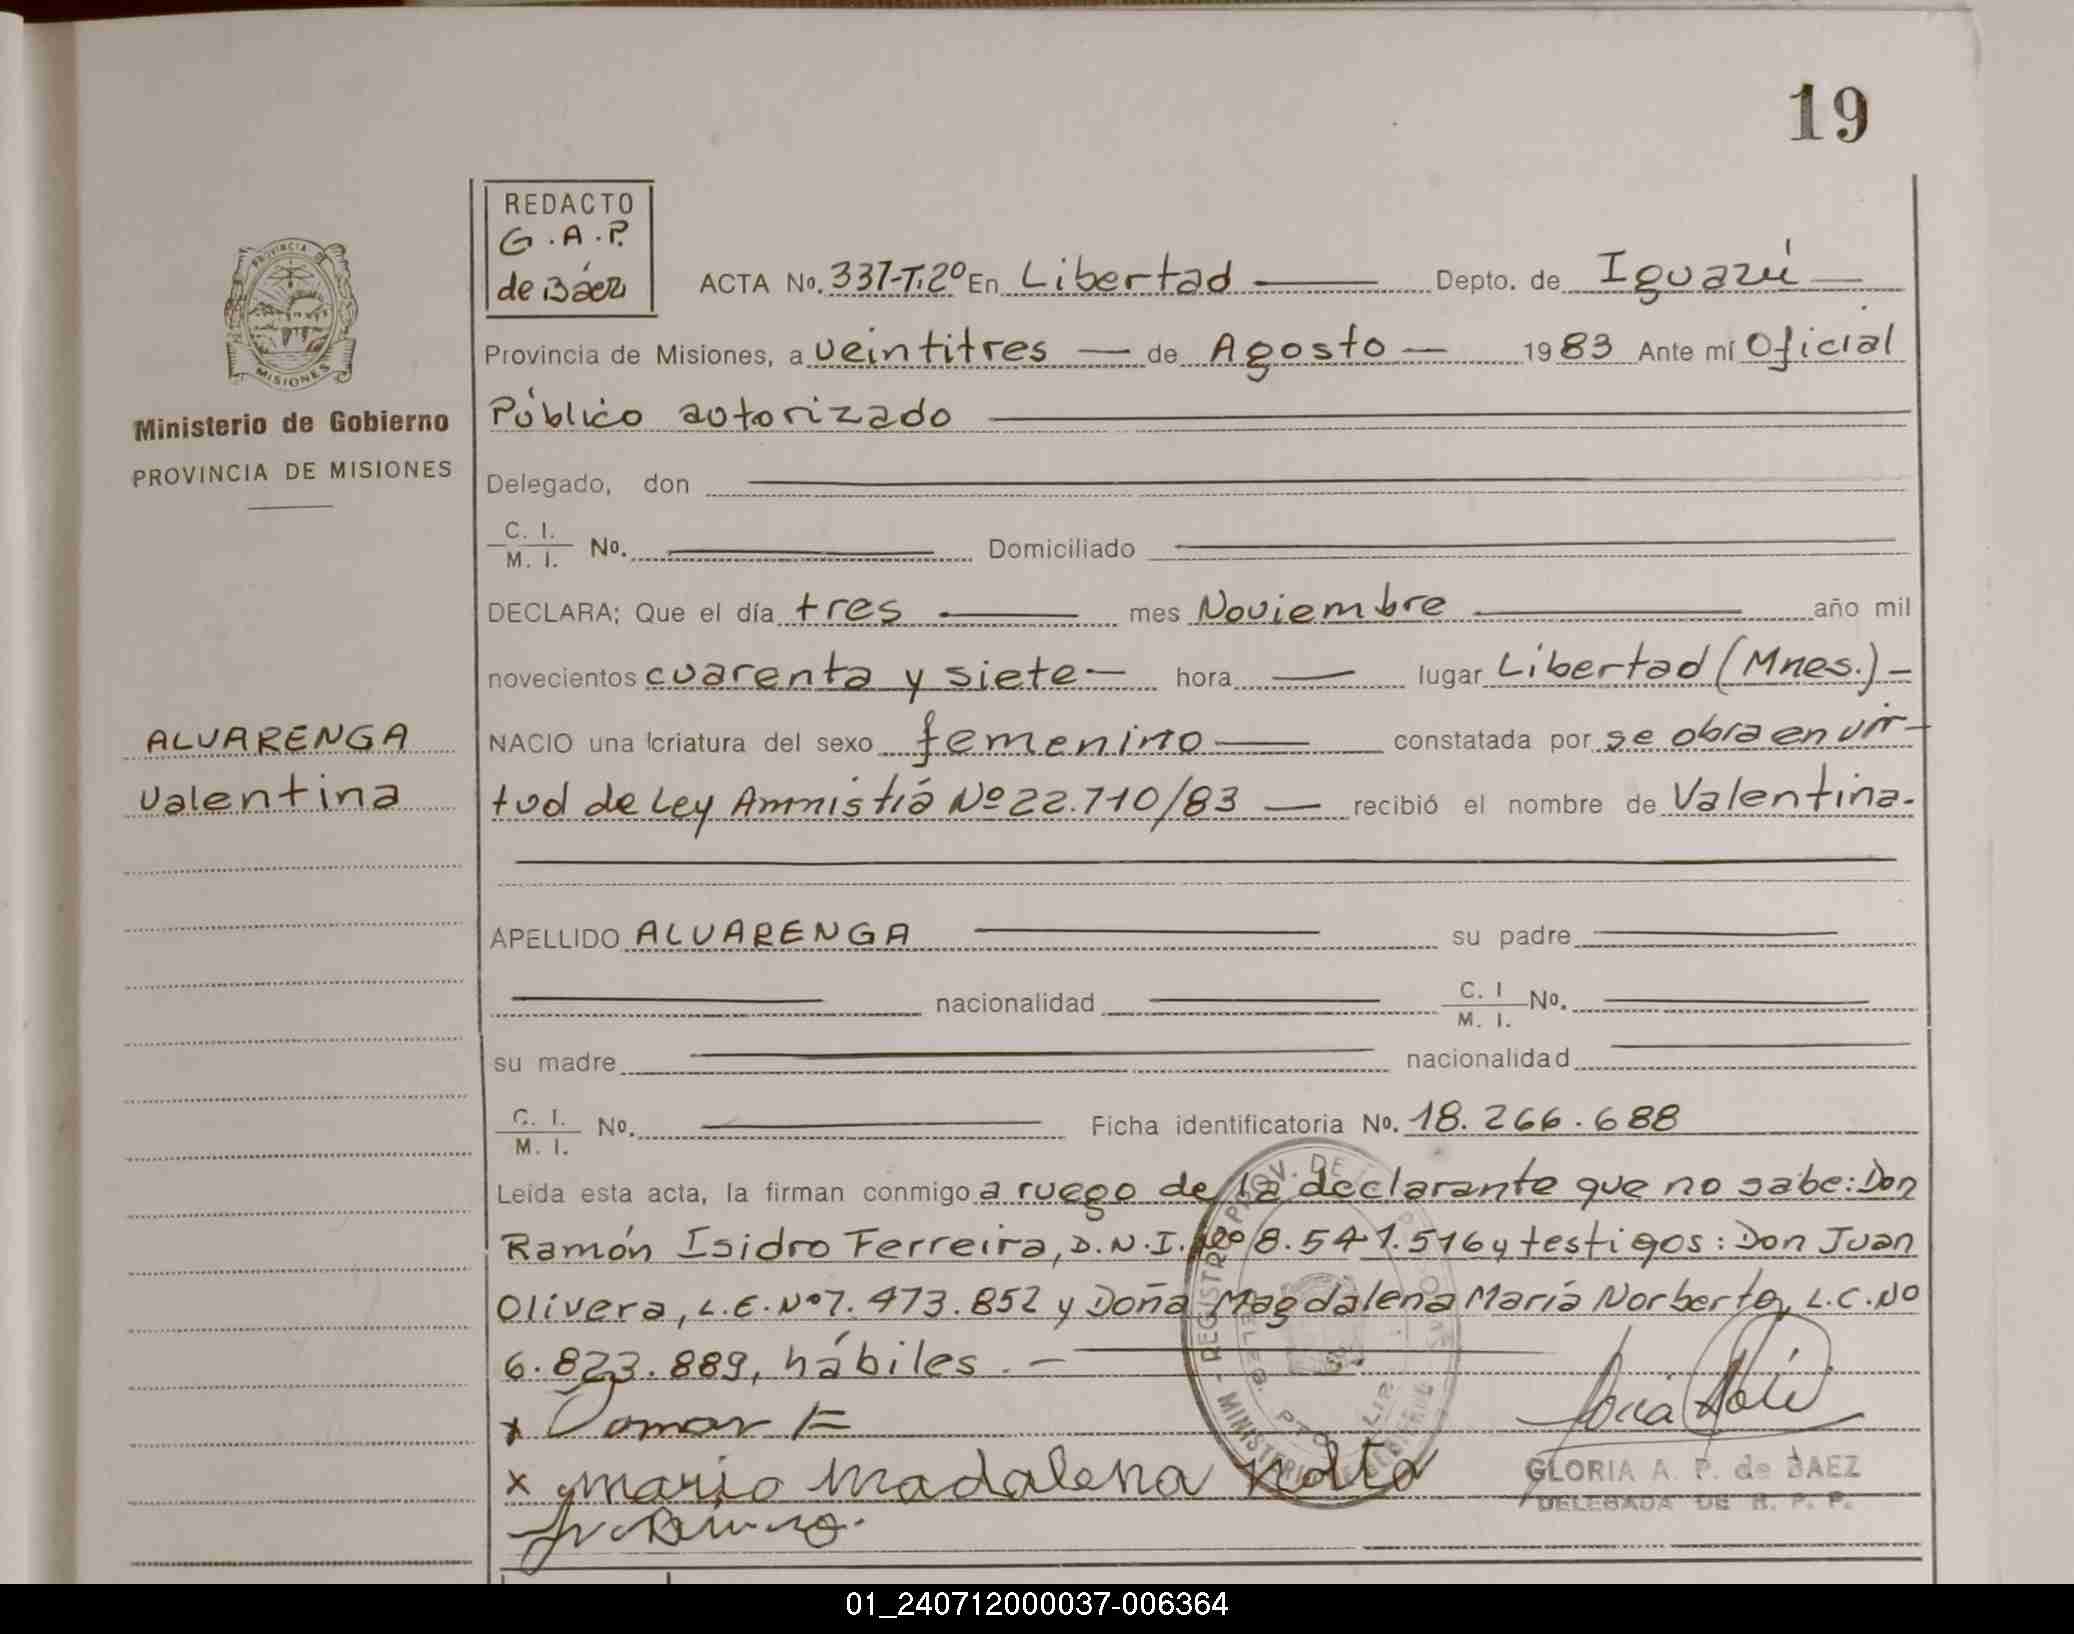 19
REDACTO
G.A.P.
de Báez
ACTA No. 337-T:2º En Libertad Depto. de Iguazú
Provincia de Misiones, a veintitres de Agosto 1983 Ante mí Oficial
Público autorizado
Ministerio de Gobierno
PROVINCIA DE MISIONES
Delegado, don
C. I. / M. I. No. Domiciliado
DECLARA; Que el día tres mes Noviembre año mil
novecientos cuarenta y siete hora lugar Libertad (Mnes.)
ALVARENGA
Valentina
NACIO una criatura del sexo femenino constatada por se obra en vir-
tud de Ley Amnistiá Nº 22.710/83 recibió el nombre de Valentina.
APELLIDO ALVARENGA su padre
nacionalidad C. I / M. I. No.
su madre nacionalidad
C. I. / M. I. No. Ficha identificatoria No. 18.266.688
Leída esta acta, la firman conmigo a ruego de la declarante que no sabe: Don
Ramón Isidro Ferreira, D.N.I. Nº 8.541.516 y testigos: Don Juan
Olivera, L.E. Nº 7.473.852 y Doña Magdalena Mariá Norberto, L.C. Nº
6.823.889, hábiles.
x
x maria madalena
GLORIA A. P. de BAEZ
DELEGADA DE R. P. P.
01_240712000037-006364